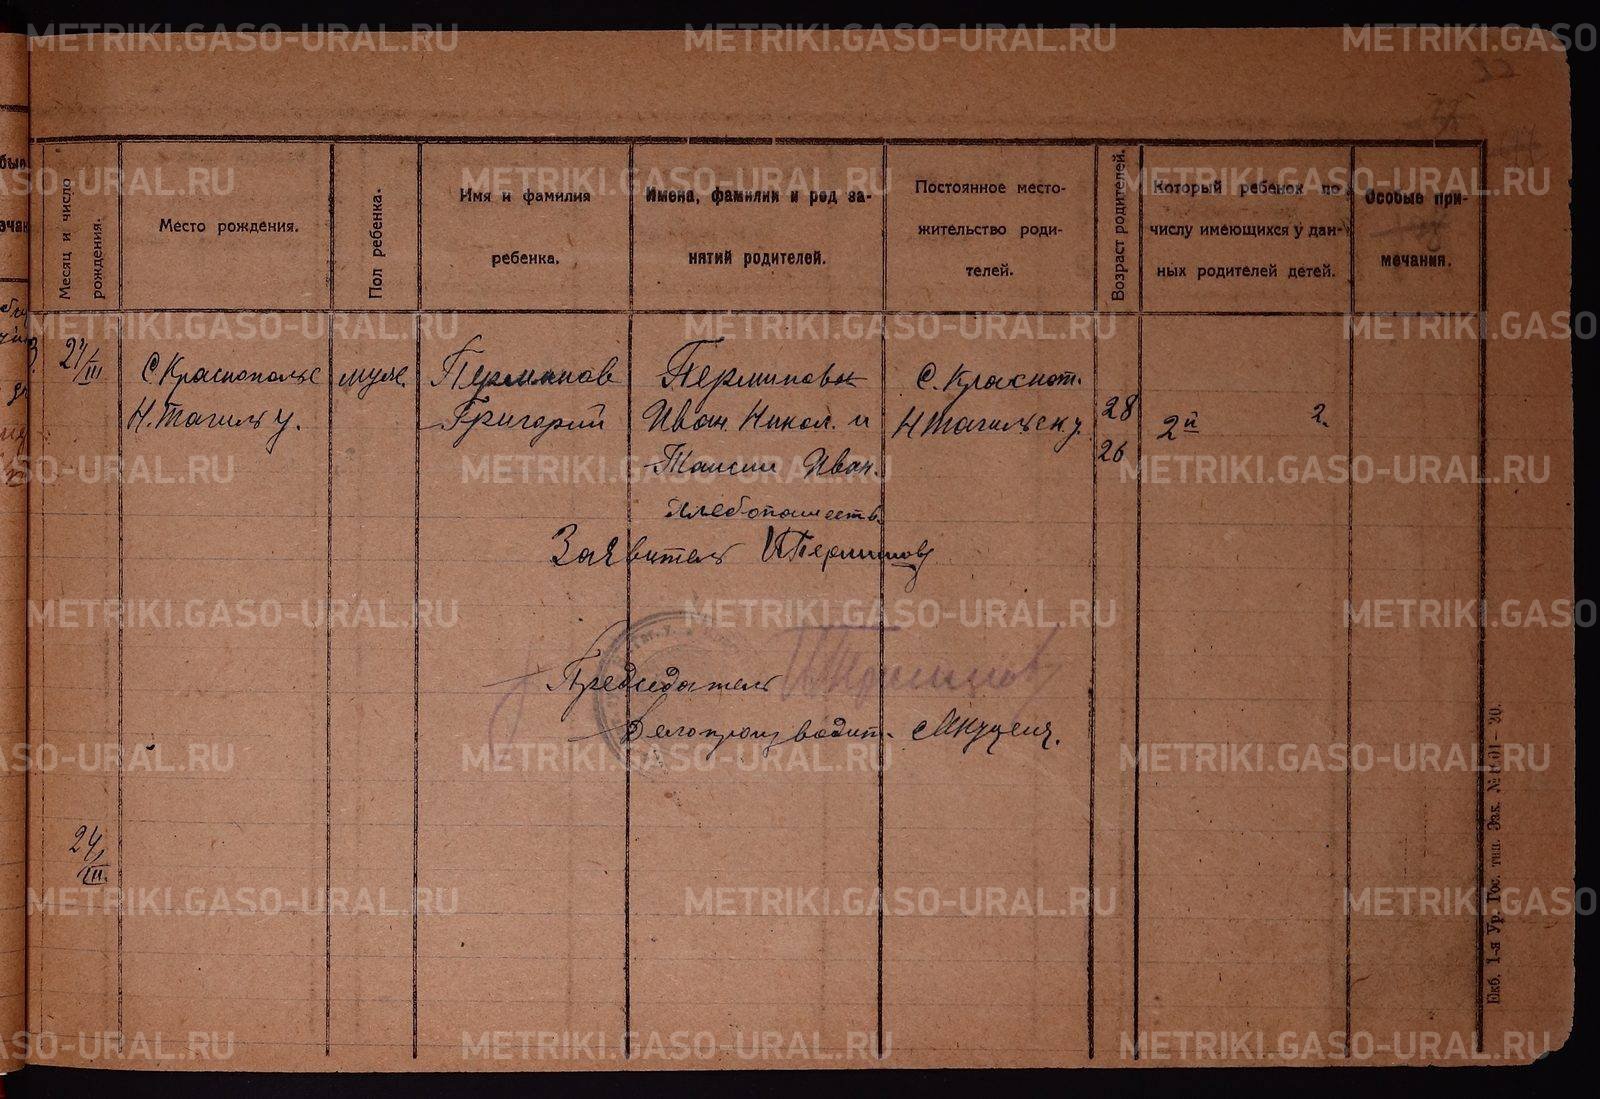 Месяц и число рождения.
Место рождения.
Пол ребенка.
Имя и фамилия
ребенка.
Имена, фамилии и род за-
нятий родителей.
Постоянное место-
жительство роди-
телей.
Возраст родителей.
Который ребенок по
числу имеющихся у дан-
ных родителей детей.
Особые при-
мечания.
С. Краснополье
Н. Тагильс у.
муж.
Перминов
Григорий
Перминовы
Иван Никол. и
Таисия Иван.
хлебопашеств.
С. Красноп.
Н Тагильск у.
28
26
2й 2.
Заявитель И Перминов
Председатель И Перминов
Делопроизводит.
24/III.
Екб. 1-я Ур. Гос. тип. Зак.
METRIKI.GASO-URAL.RU